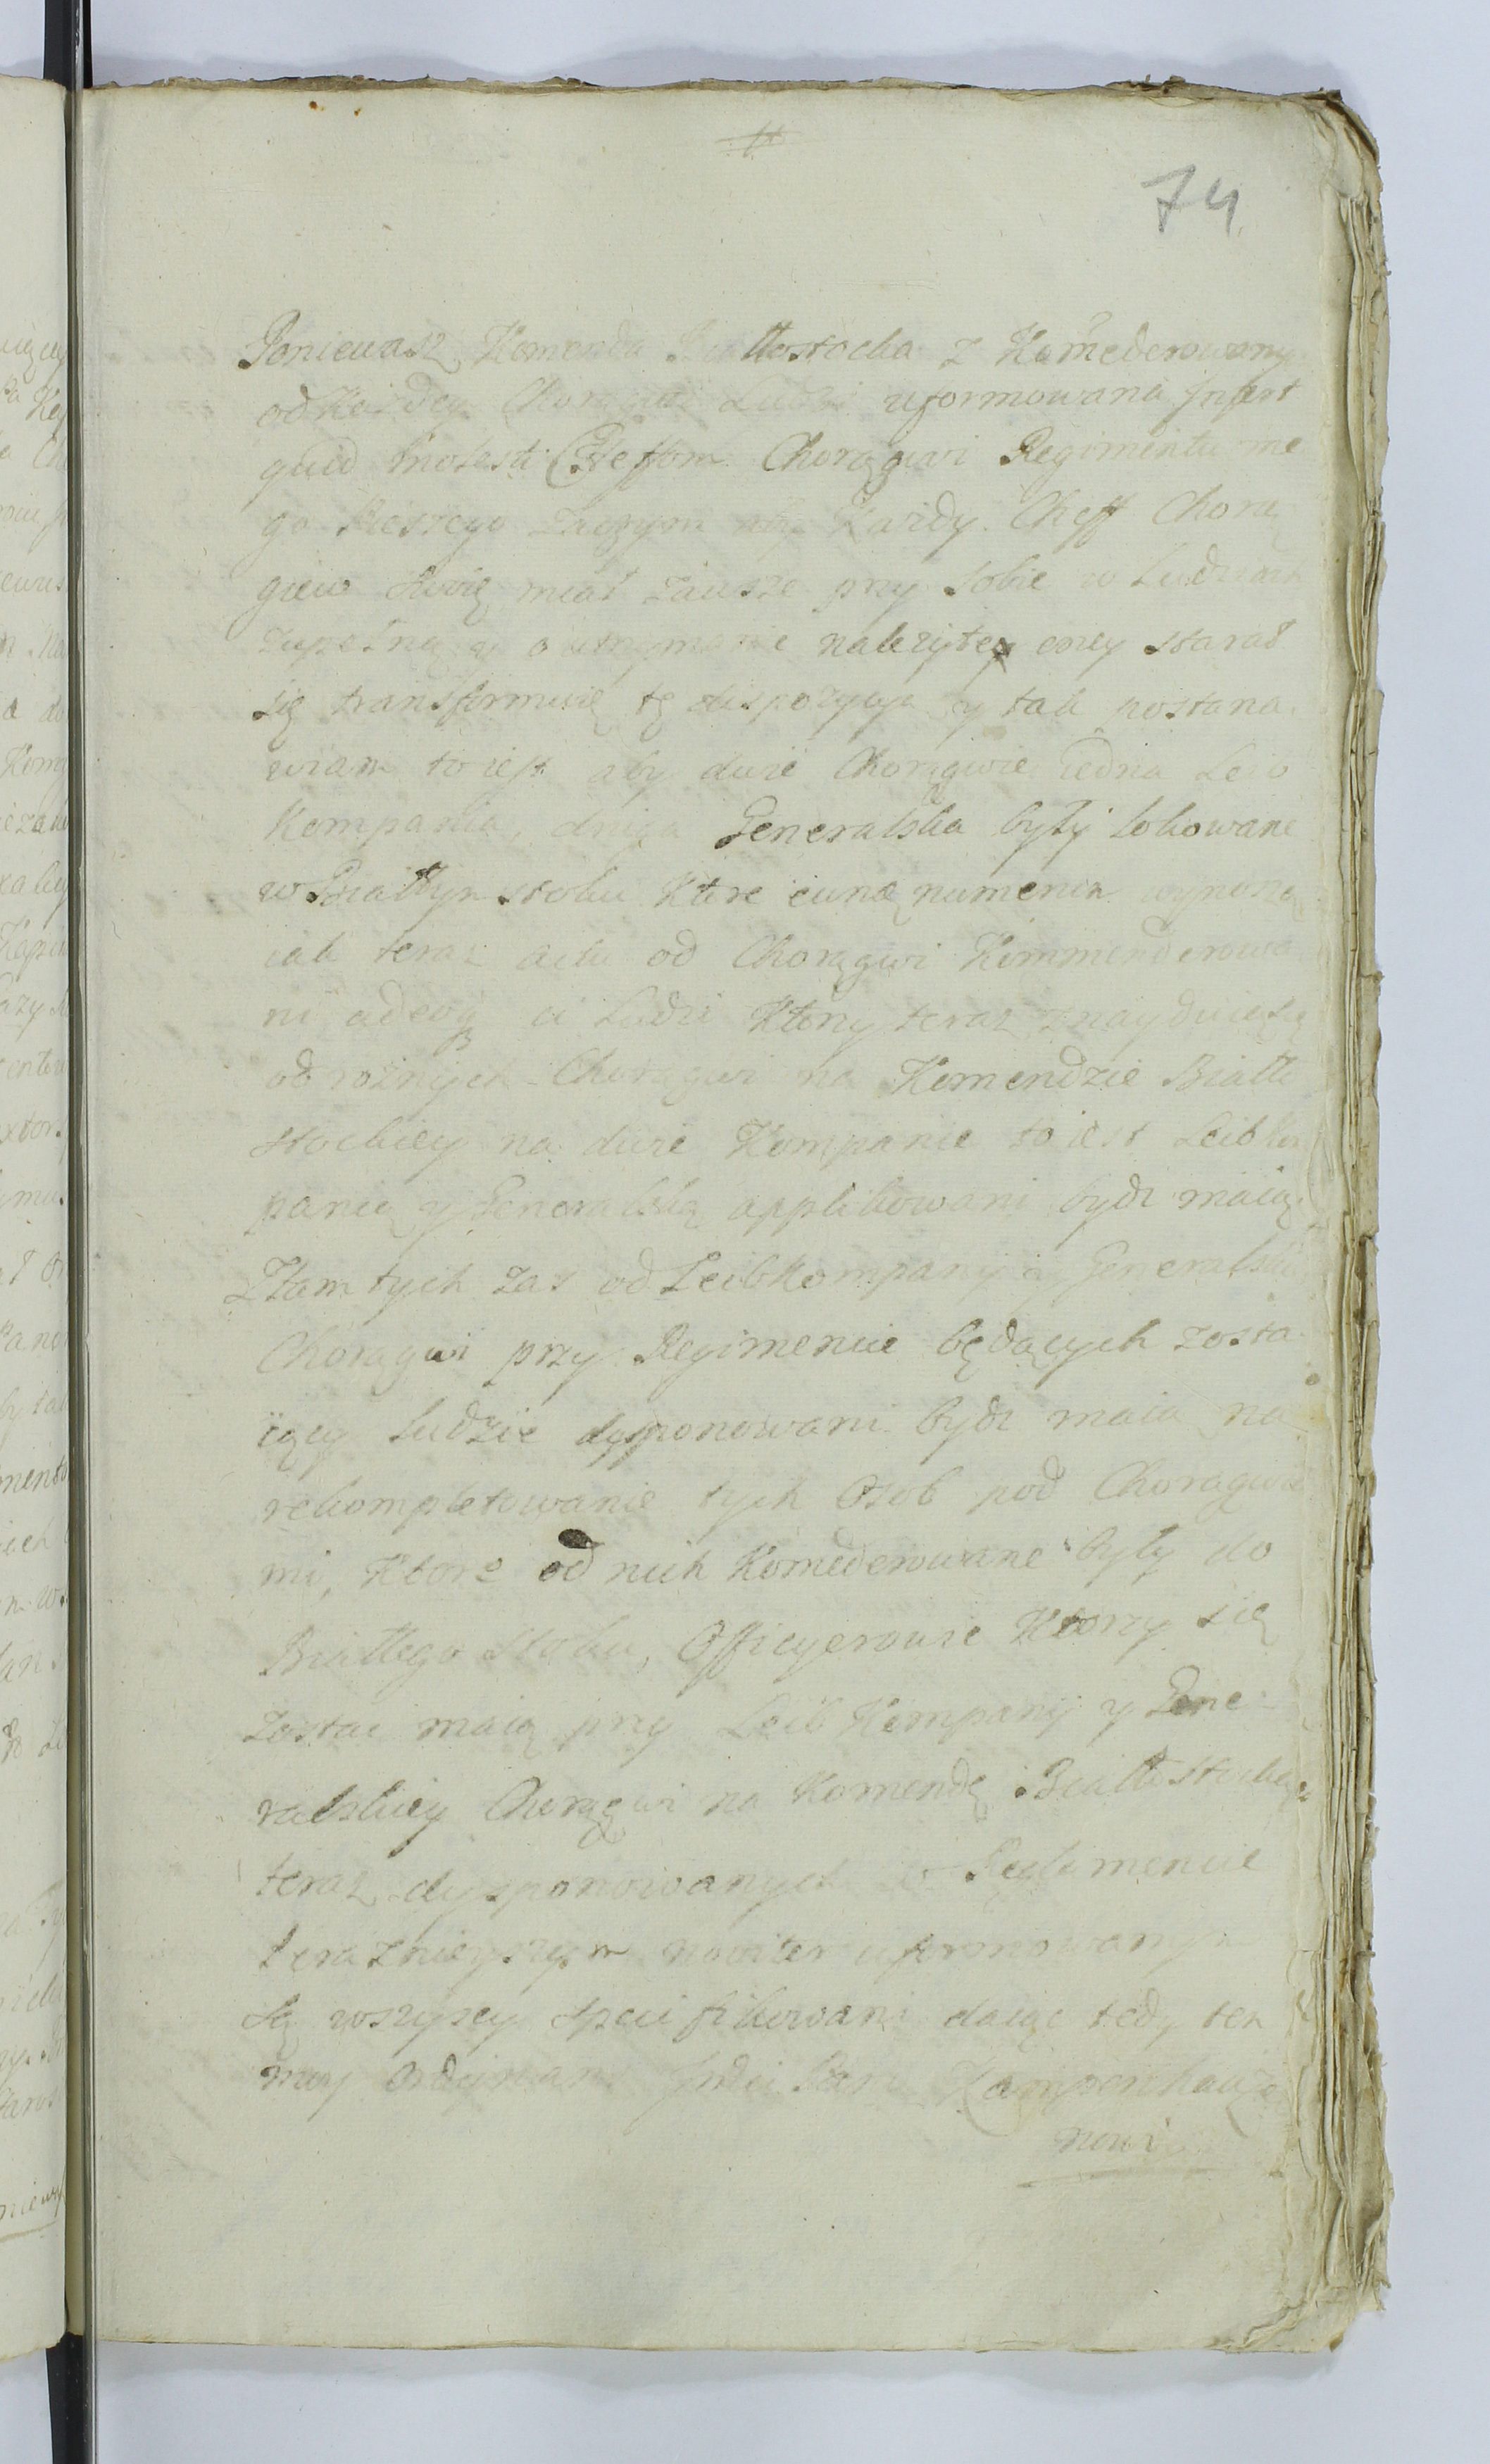 74
Poniewasz Komenda Białłostocka z Komēderowany
od Każdey Chorągwi Ludzi uformowana Infert
quid molesti Cheffom Chorągwi Regimentu me
go Pieszego zaczym aby Każdy Cheff Chorą
giew swoię miał zawsze przy sobie w Ludziach
zupełną y o utrzymanie należytey oney starał
się transformuię tę dispozycyą y tak postana
wiam to iest aby dwie Chorągwie iedna Leib
Kompania, druga Generalska były lokowane
w Białłym stoku Ktore eundē numerum wynoszą
iak teraz actu od Chorągwi Kommenderowa
ni adeoq ci Ludzi Ktorzy teraz znayduią się
od rożnych Chorągwi na Komendzie Biało
stockiey na dwie Kompanie to iest Leib Kom
panią y Generalską applikowani bydz maią.
Ztamtych zas od Leib Kompany y Generalskiey
Chorągwi przy Regimencie będących zosta
iący Ludzie dysponowani bydz maia na
rekompletowanie tych Osob pod Chorągwia
mi, Ktore od nich Komēderowane były do
Białłego Stoku, Officyerowie Ktorzy się
zostac maią przy Leib Kompany y Gene-
ralskiey Chorągwi na Komendę Białłostocką
teraz dysponowanych w Reglimencie
teraznieyszym noviter uformowanym
są wszyscy specifikowani daiąc tedy ten
moy Ordynans Pan Kampenhauze
nowi